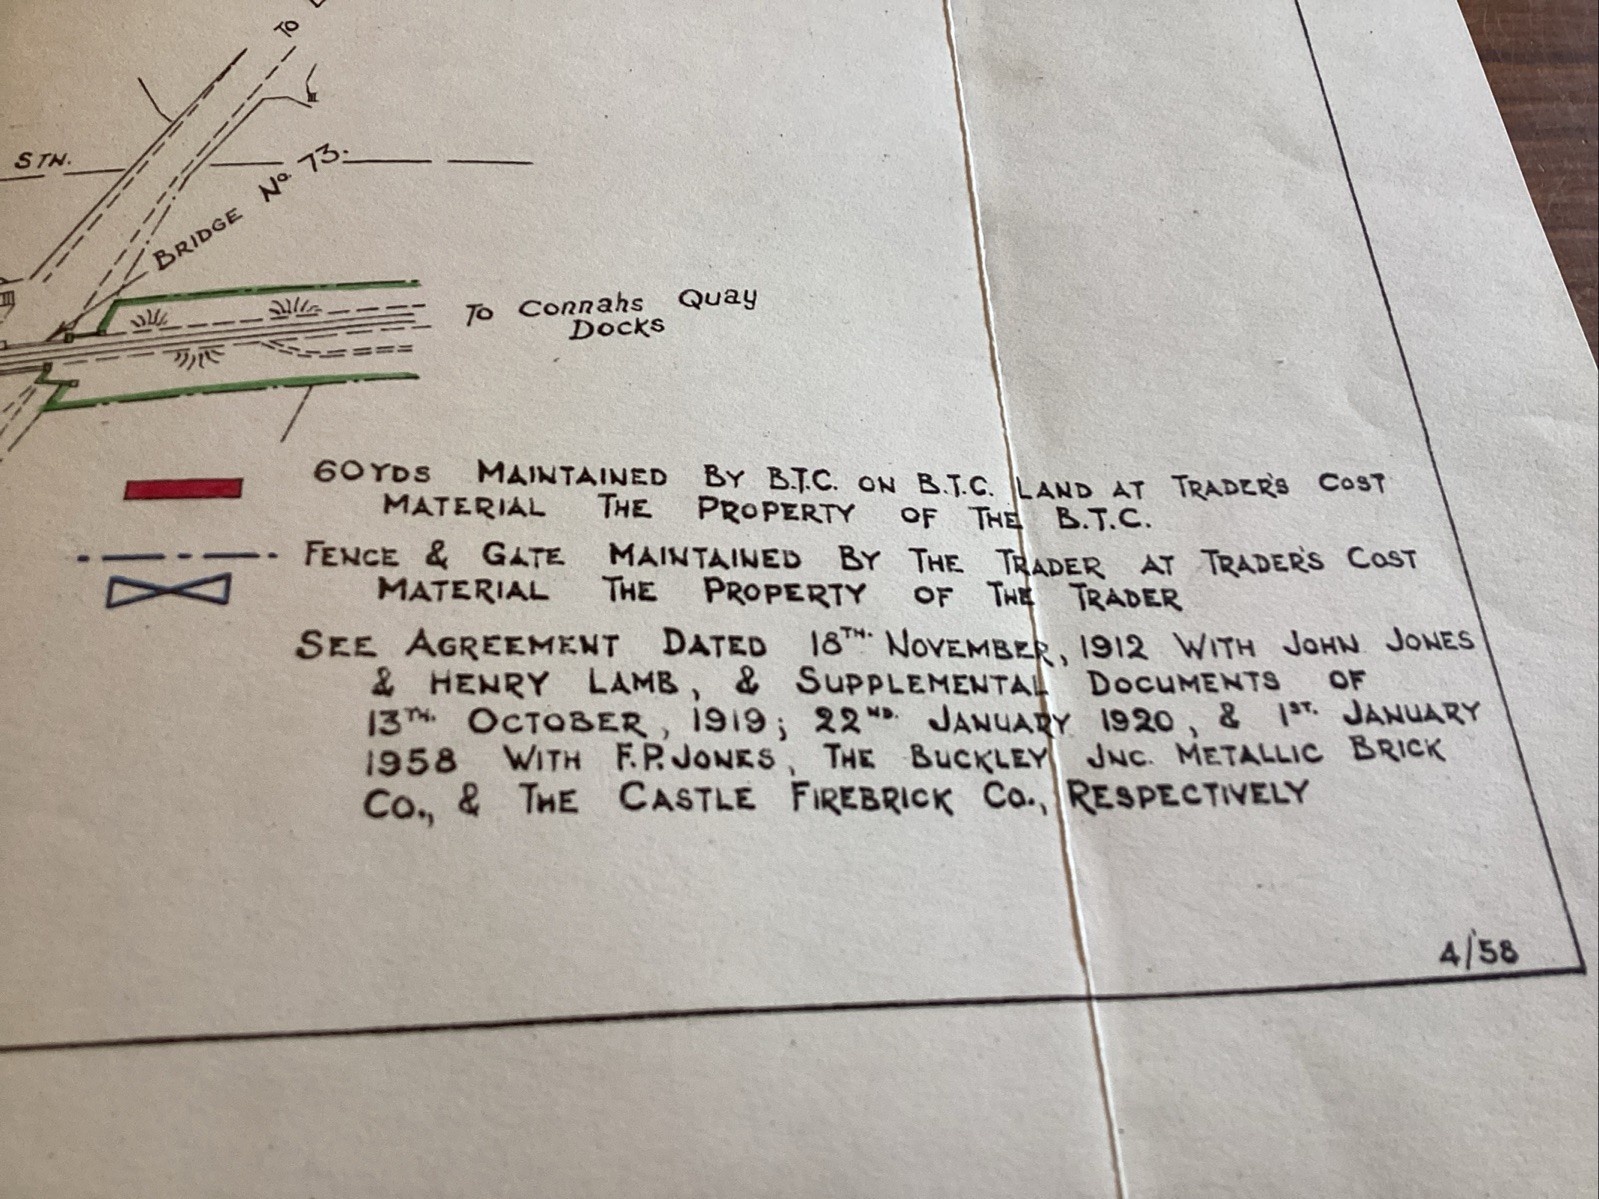 To
STN.
BRIDGE No. 73.
To Connahs Quay
Docks
60YDS MAINTAINED BY B.T.C. ON B.T.C. LAND AT TRADER'S COST
MATERIAL THE PROPERTY OF THE B.T.C.
FENCE & GATE MAINTAINED BY THE TRADER AT TRADER'S COST
MATERIAL THE PROPERTY OF THE TRADER
SEE AGREEMENT DATED 18TH. NOVEMBER, 1912 WITH JOHN JONES
& HENRY LAMB, & SUPPLEMENTAL DOCUMENTS OF
13TH. OCTOBER, 1919; 22ND. JANUARY 1920, & 1ST. JANUARY
1958 WITH F.P. JONES, THE BUCKLEY JNC. METALLIC BRICK
CO., & THE CASTLE FIREBRICK CO., RESPECTIVELY
4/58